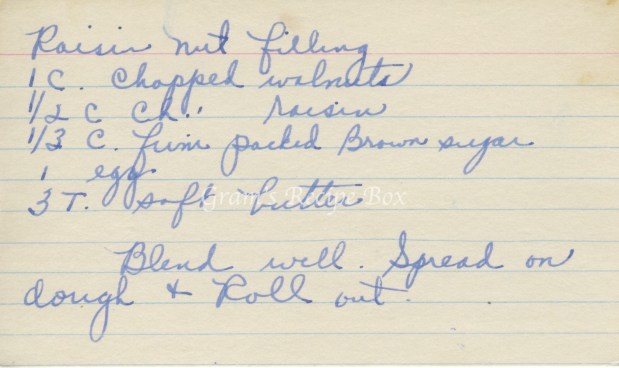 Raisin nut filling
1 C. chopped walnuts
1/2 C Ch. " raisin
1/3 C. firm packed Brown sugar
1 egg
3 T. soft butter
Gram's Recipe Box
Blend well. Spread on
dough & Roll out.